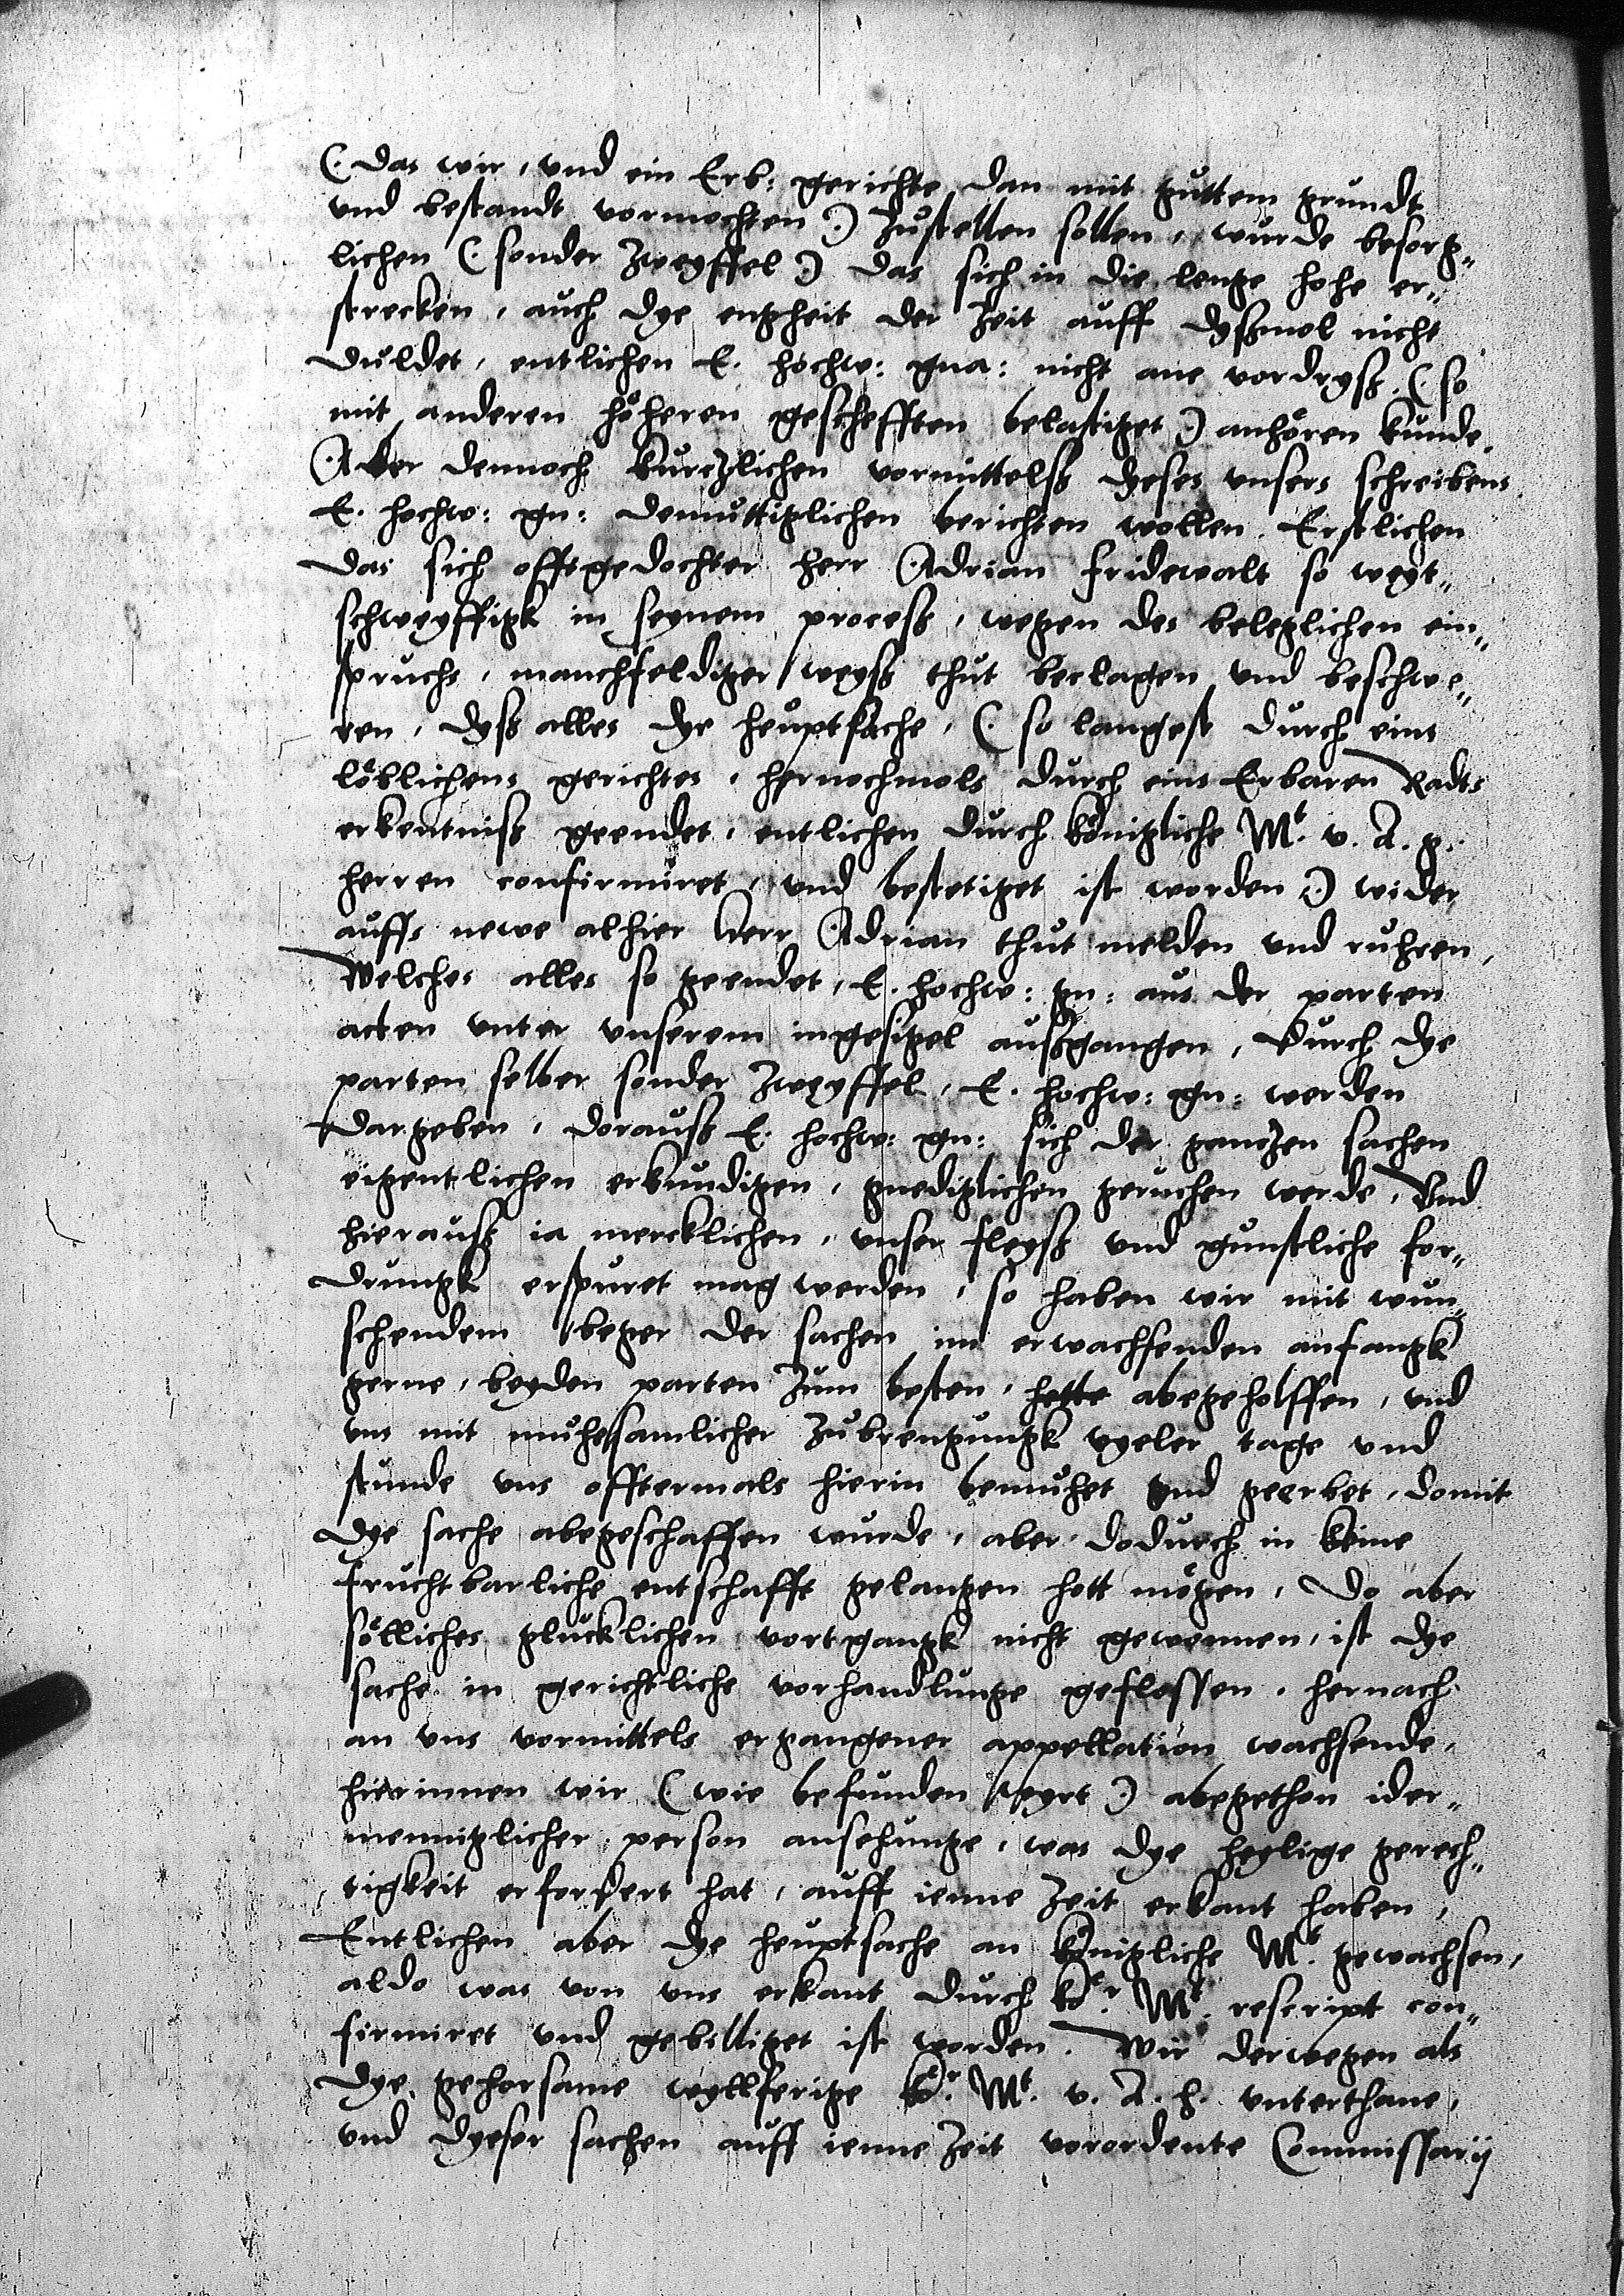 (: das wir, vnd ein Erb: gerichte dan mit guttem grundt
vnd bestandt vormochten :) zustellen sollen, wurde besorg„
lichen (: sonder zweyffel :) das sich in die lenge hohe er„
strecken, auch dye engheit der zeit auff dyßmol nicht
duldet, entlichen E. hochw: gna: nicht ane vordryß (: so
mit anderen höheren geschefften belastiget :) anhören kunde.
Aber dennoch kurczlichen vormittelß dyeses vnsers schreibens
E. hochw: gn: demuttiglichen berichten wollen. Erstlichen
das sich offtgedochter herr Adrian Fridewalt so weyt„
schweyffigk in seynem proceß, wegen des beleglichen ein„
spruchs, manchfeldiger weyß thut beclagen vnd beschwe„
ren, dyß alles dye heuptsache, (: so langest durch eins
löblichens gerichtes, hernochmols durch eins Erbaren Radts
erkentniß geendet, entlichen durch königliche Mt. v. A. g.
herren confirmiret, vnd bestetiget ist worden :) wider
auffs newe alhier herr Adrian thut melden vnd ruhren,
Welches alles so geendet, E. hochw: gn: aus der parten
acten vnter vnserem ingesigel außgangen, durch dye
parten selber sonder zweyffel, E. hochw: gn: werden
dargeben, dorauß E. hochw: gn: sich der ganczen sachen
eigentlichen erkundigen, gnediglichen geruchen werde, Vnd
hierauß ia mercklichen, vnser fleyß vnd gunstliche for„
drungk erspuret mag werden, so haben wir mit wun„
schendem beger der sachen im erwachsenden anfangk
gerne, beyden parten zum besten, hette abegeholffen, vnd
vns mit muhesamlicher zubrengungk vyeler tage vnd
stunde vns offtermals hierin bemuhet vnd geerbet, domit
dye sache abegeschaffen wurde, aber dodurch in keine
fruchtbarliche entschafft gelangen hott mögen, Do aber
sölliches glucklichen vortgangk nicht gewonnen, ist dye
sache in gerichtliche vorhandlunge geflossen, hernach
an vns vormittels ergangener appellation wachsende,
hierinnen wir (wie befunden wyrt :) abegethon ider„
menniglicher person ansehunge, was dye heylige gerech„
tigkeit erfordert hat, auff ienne zeit erkant haben,
Entlichen aber dye heuptsache an königliche Mt. gewachsen,
aldo was von vns erkant durch kö.r Mt. rescript con„
firmiret vnd gebilliget ist worden. Wir derwegen als
dye gehorsame wyllferige kö.r Mt. v. A. h. vnterthane,
vnd dyeser sachen auff ienne zeit vorordente Commissarij